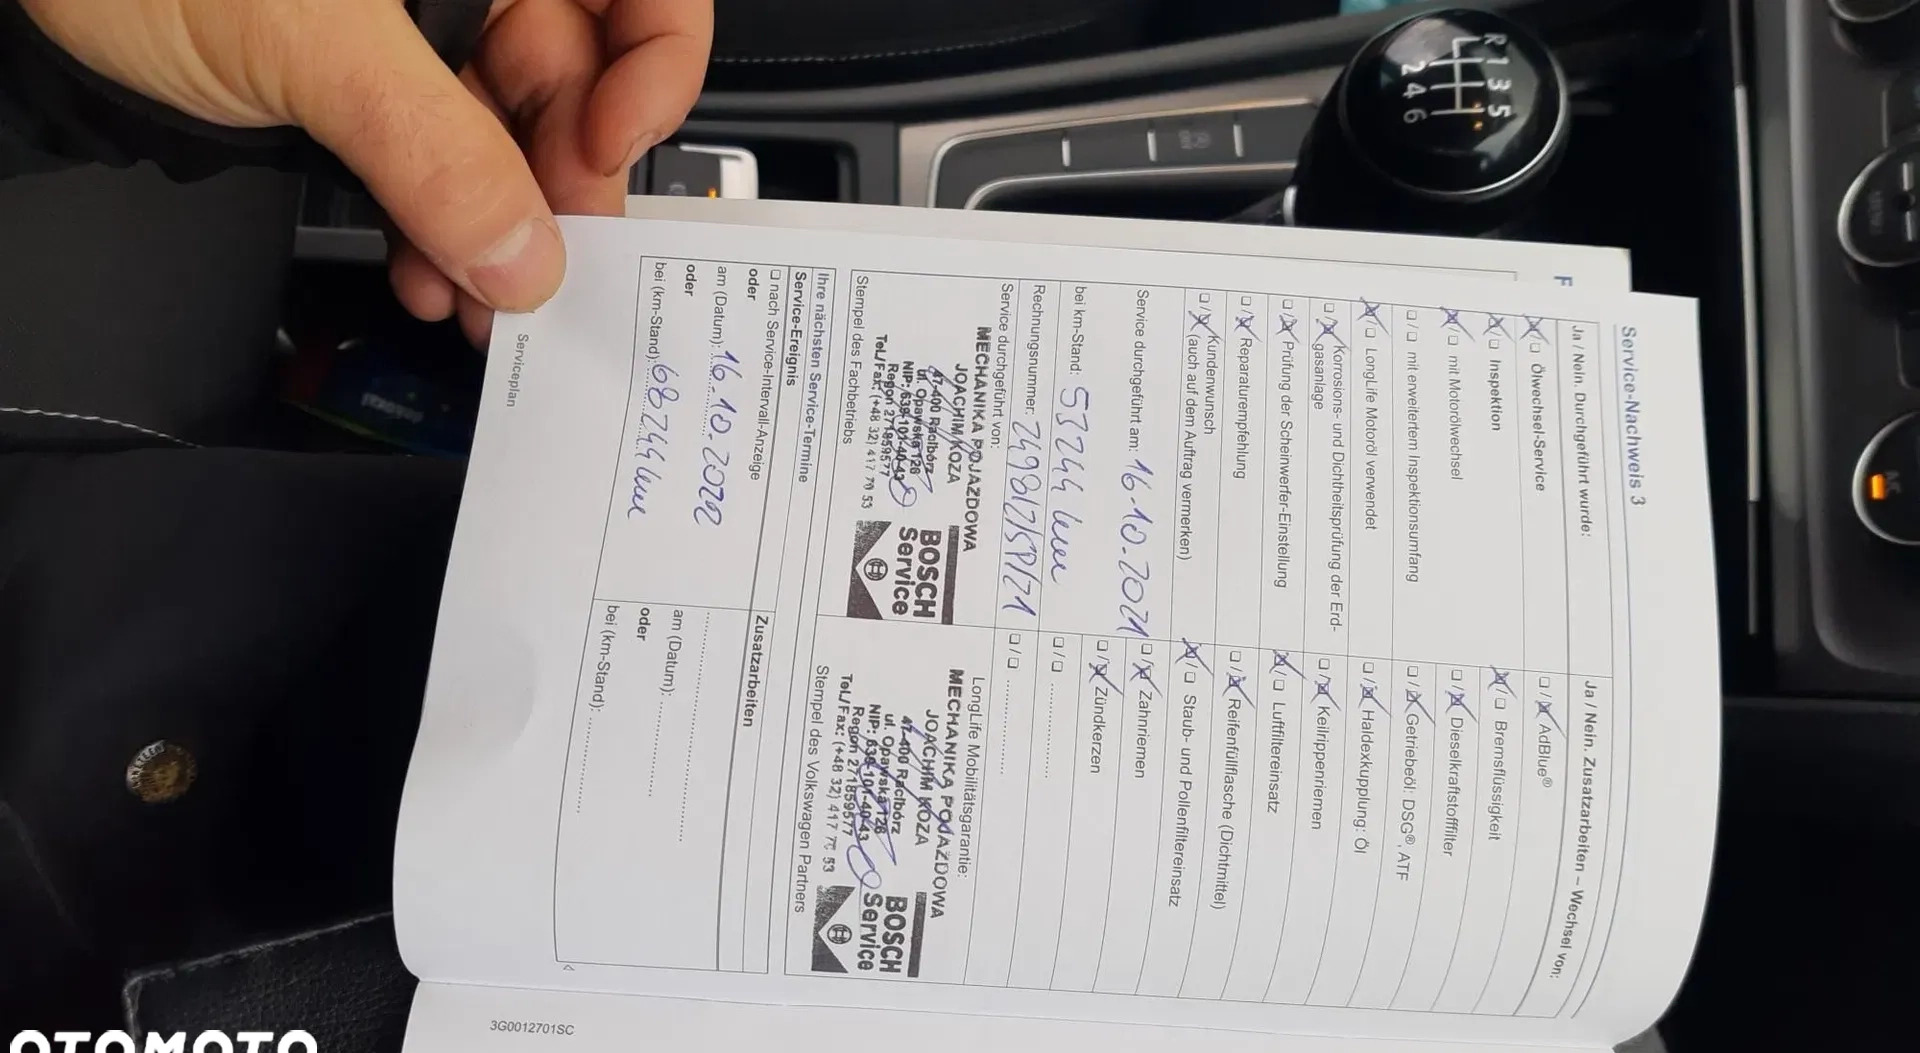 Service-Nachweis 3
Ja / Nein. Durchgeführt wurde:
☒/☐ Ölwechsel-Service
☒/☐ Inspektion
☒/☐ mit Motorölwechsel
☐/☐ mit erweitertem Inspektionsumfang
☒/☐ LongLife Motoröl verwendet
☐/☒ Korrosions- und Dichtheitsprüfung der Erd-
gasanlage
☐/☒ Prüfung der Scheinwerfer-Einstellung
☐/☒ Reparaturempfehlung
☐/☒ Kundenwunsch
(auch auf dem Auftrag vermerken)
Service durchgeführt am: 16-10-2021
bei km-Stand: 53244 km
Rechnungsnummer: 2498/2/SP/21
Service durchgeführt von:
MECHANIKA POJAZDOWA
JOACHIM KOZA
47-400 Racibórz
ul. Opawska 126
NIP: 639-101-40-43
Regon 271859577
Tel./Fax: (+48 32) 417 70 53
BOSCH
Service
Stempel des Fachbetriebs
Ja / Nein. Zusatzarbeiten – Wechsel von:
☐/☒ AdBlue®
☒/☐ Bremsflüssigkeit
☐/☒ Dieselkraftstofffilter
☐/☒ Getriebeöl: DSG®, ATF
☐/☒ Haldexkupplung: Öl
☐/☒ Keilrippenriemen
☒/☐ Luftfiltereinsatz
☐/☒ Reifenfüllflasche (Dichtmittel)
☒/☐ Staub- und Pollenfiltereinsatz
☐/☒ Zahnriemen
☐/☒ Zündkerzen
☐/☐ ....................
☐/☐ ....................
LongLife Mobilitätsgarantie:
MECHANIKA POJAZDOWA
JOACHIM KOZA
47-400 Racibórz
ul. Opawska 126
NIP: 639-101-40-43
Regon 271859577
Tel./Fax: (+48 32) 417 70 53
BOSCH
Service
Stempel des Volkswagen Partners
Ihre nächsten Service-Termine
Service-Ereignis
☐ nach Service-Intervall-Anzeige
oder
am (Datum): 16.10.2022
oder
bei (km-Stand): 68244 km
Zusatzarbeiten
....................
am (Datum): ....................
oder
bei (km-Stand): ....................
Serviceplan
3G0012701SC
F
R 1 3 5
2 4 6
A/C
OTOMOTO